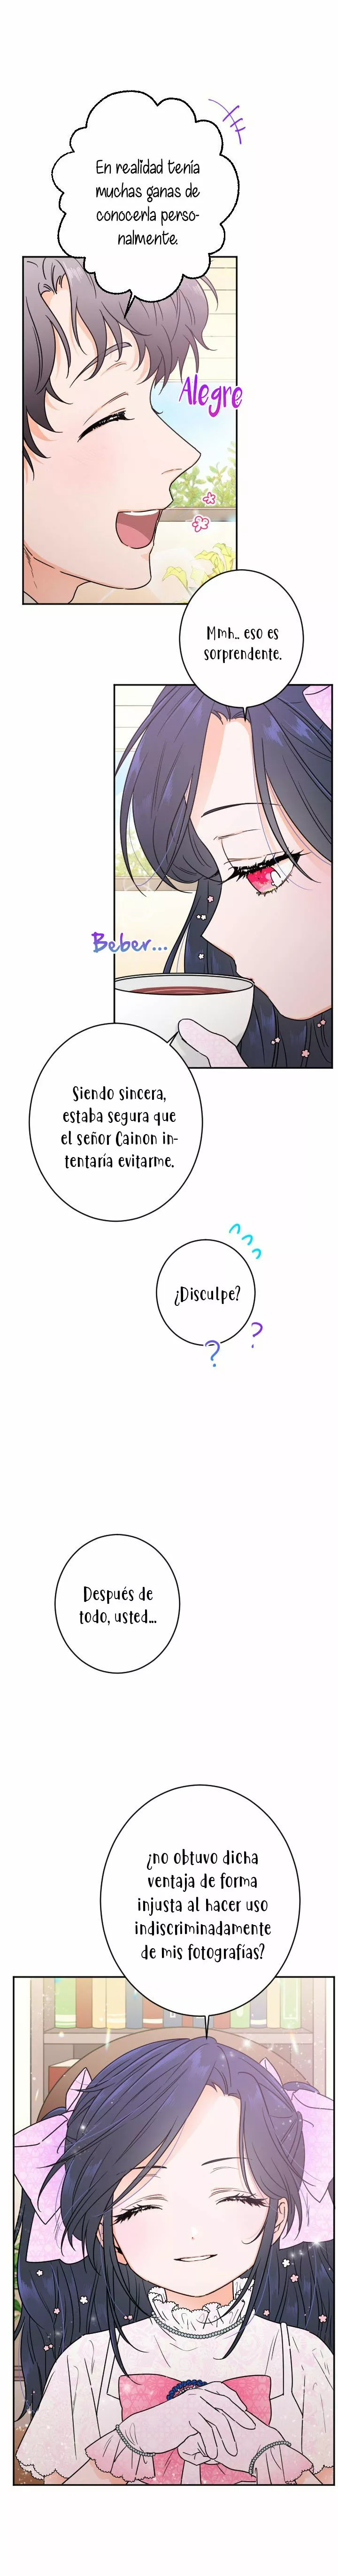 En realidad tenía
muchas ganas de
conocerla perso-
nalmente.
Alegre
Mmh.. eso es
sorprendente.
Beber...
Siendo sincera,
estaba segura que
el señor Cainon in-
tentaría evitarme.
¿Disculpe?
?
?
Después de
todo, usted...
¿no obtuvo dicha
ventaja de forma
injusta al hacer uso
indiscriminadamente
de mis fotografías?